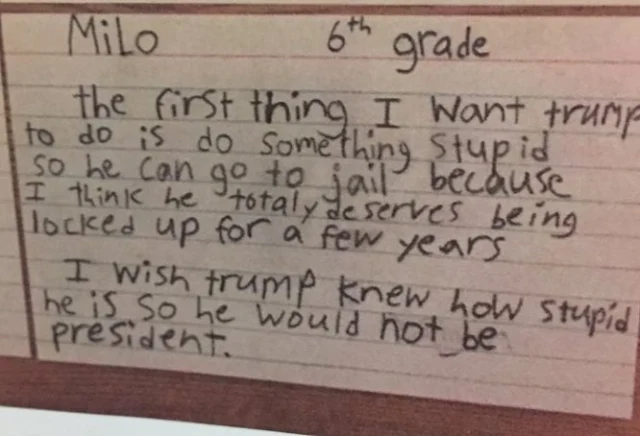 Milo 6th grade
the first thing I want trump
to do is do something stupid
so he can go to jail because
I think he totaly deserves being
locked up for a few years
I wish trump knew how stupid
he is so he would not be
president.